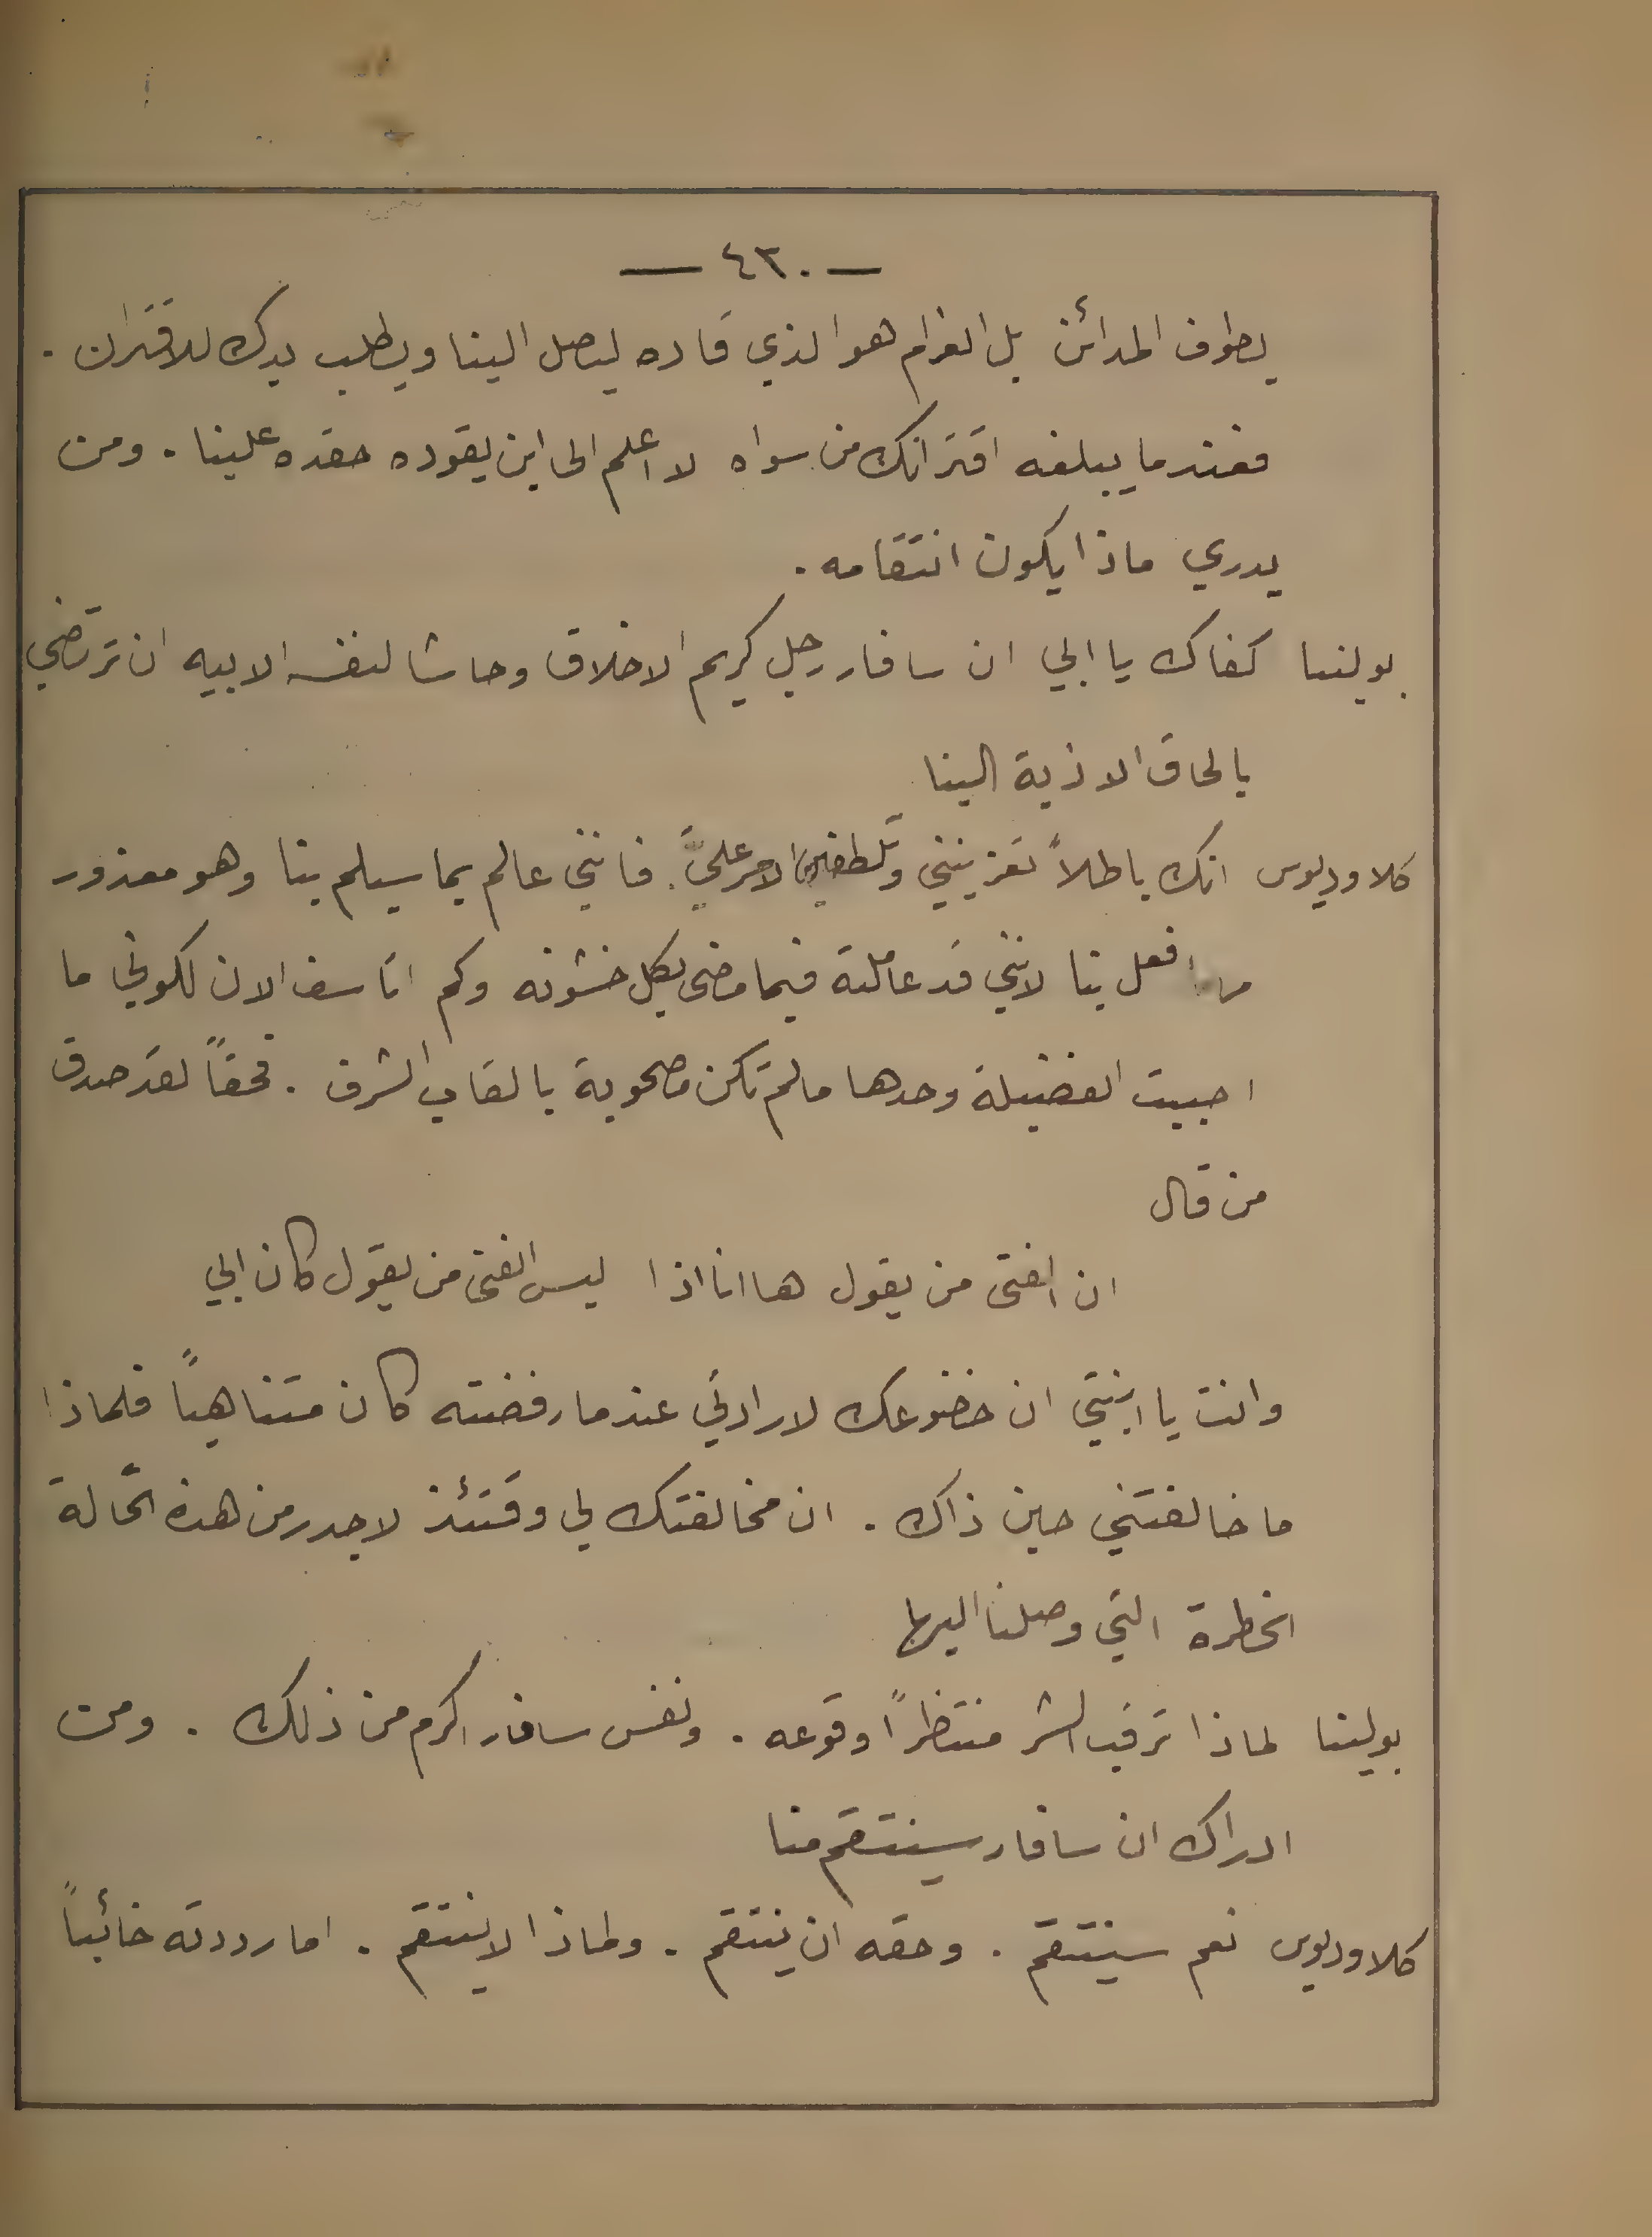 — ٤٣٠ —
يطوف المدائن بل الغرام هو الذي قاده ليصل الينا ويطلب يدك للاقتران .
فعندما يبلغه اقترانك من سواه لا اعلم الى اين يقوده حقده علينا . ومن
يدري ماذا يكون انتقامه .
بولينا كفاك يا ابي ان سافار رجل كريم الاخلاق وحاشا لنفسه الابيه ان ترتضي
بالحاق الاذية الينا
كلاوديوس انك باطلاً تعزينني وتلطفين الامر عليَّ . فانني عالم بما سيلم بنا وهو معذور
مهما فعل بنا لانني قد عاملته فيما مضى بكل خشونه وكم اتاسف الان لكوني ما
احببت الفضيلة وحدها مالم تكن مصحوبة بالقاب الشرف . فحقاً لقد صدق
من قال
ان الفتى من يقول ها انا اذا ليس الفتى من يقول كان ابي
وانت يا ابنتي ان خضوعك لارادتي عندما رفضته كان متناهياً فلماذا
ما خالفتني حين ذاك . ان مخالفتك لي وقتئذ لاجدر من هذه الحالة
الخطرة التي وصلنا اليها
بولينا لماذا ترقب الشر منتظراً وقوعه . ونفس سافار اكرم من ذلك . ومن
ادراك ان سافار سينتقم منا
كلاوديوس نعم سينتقم . وحقه ان ينتقم . ولماذا لا ينتقم . اما رددته خائباً